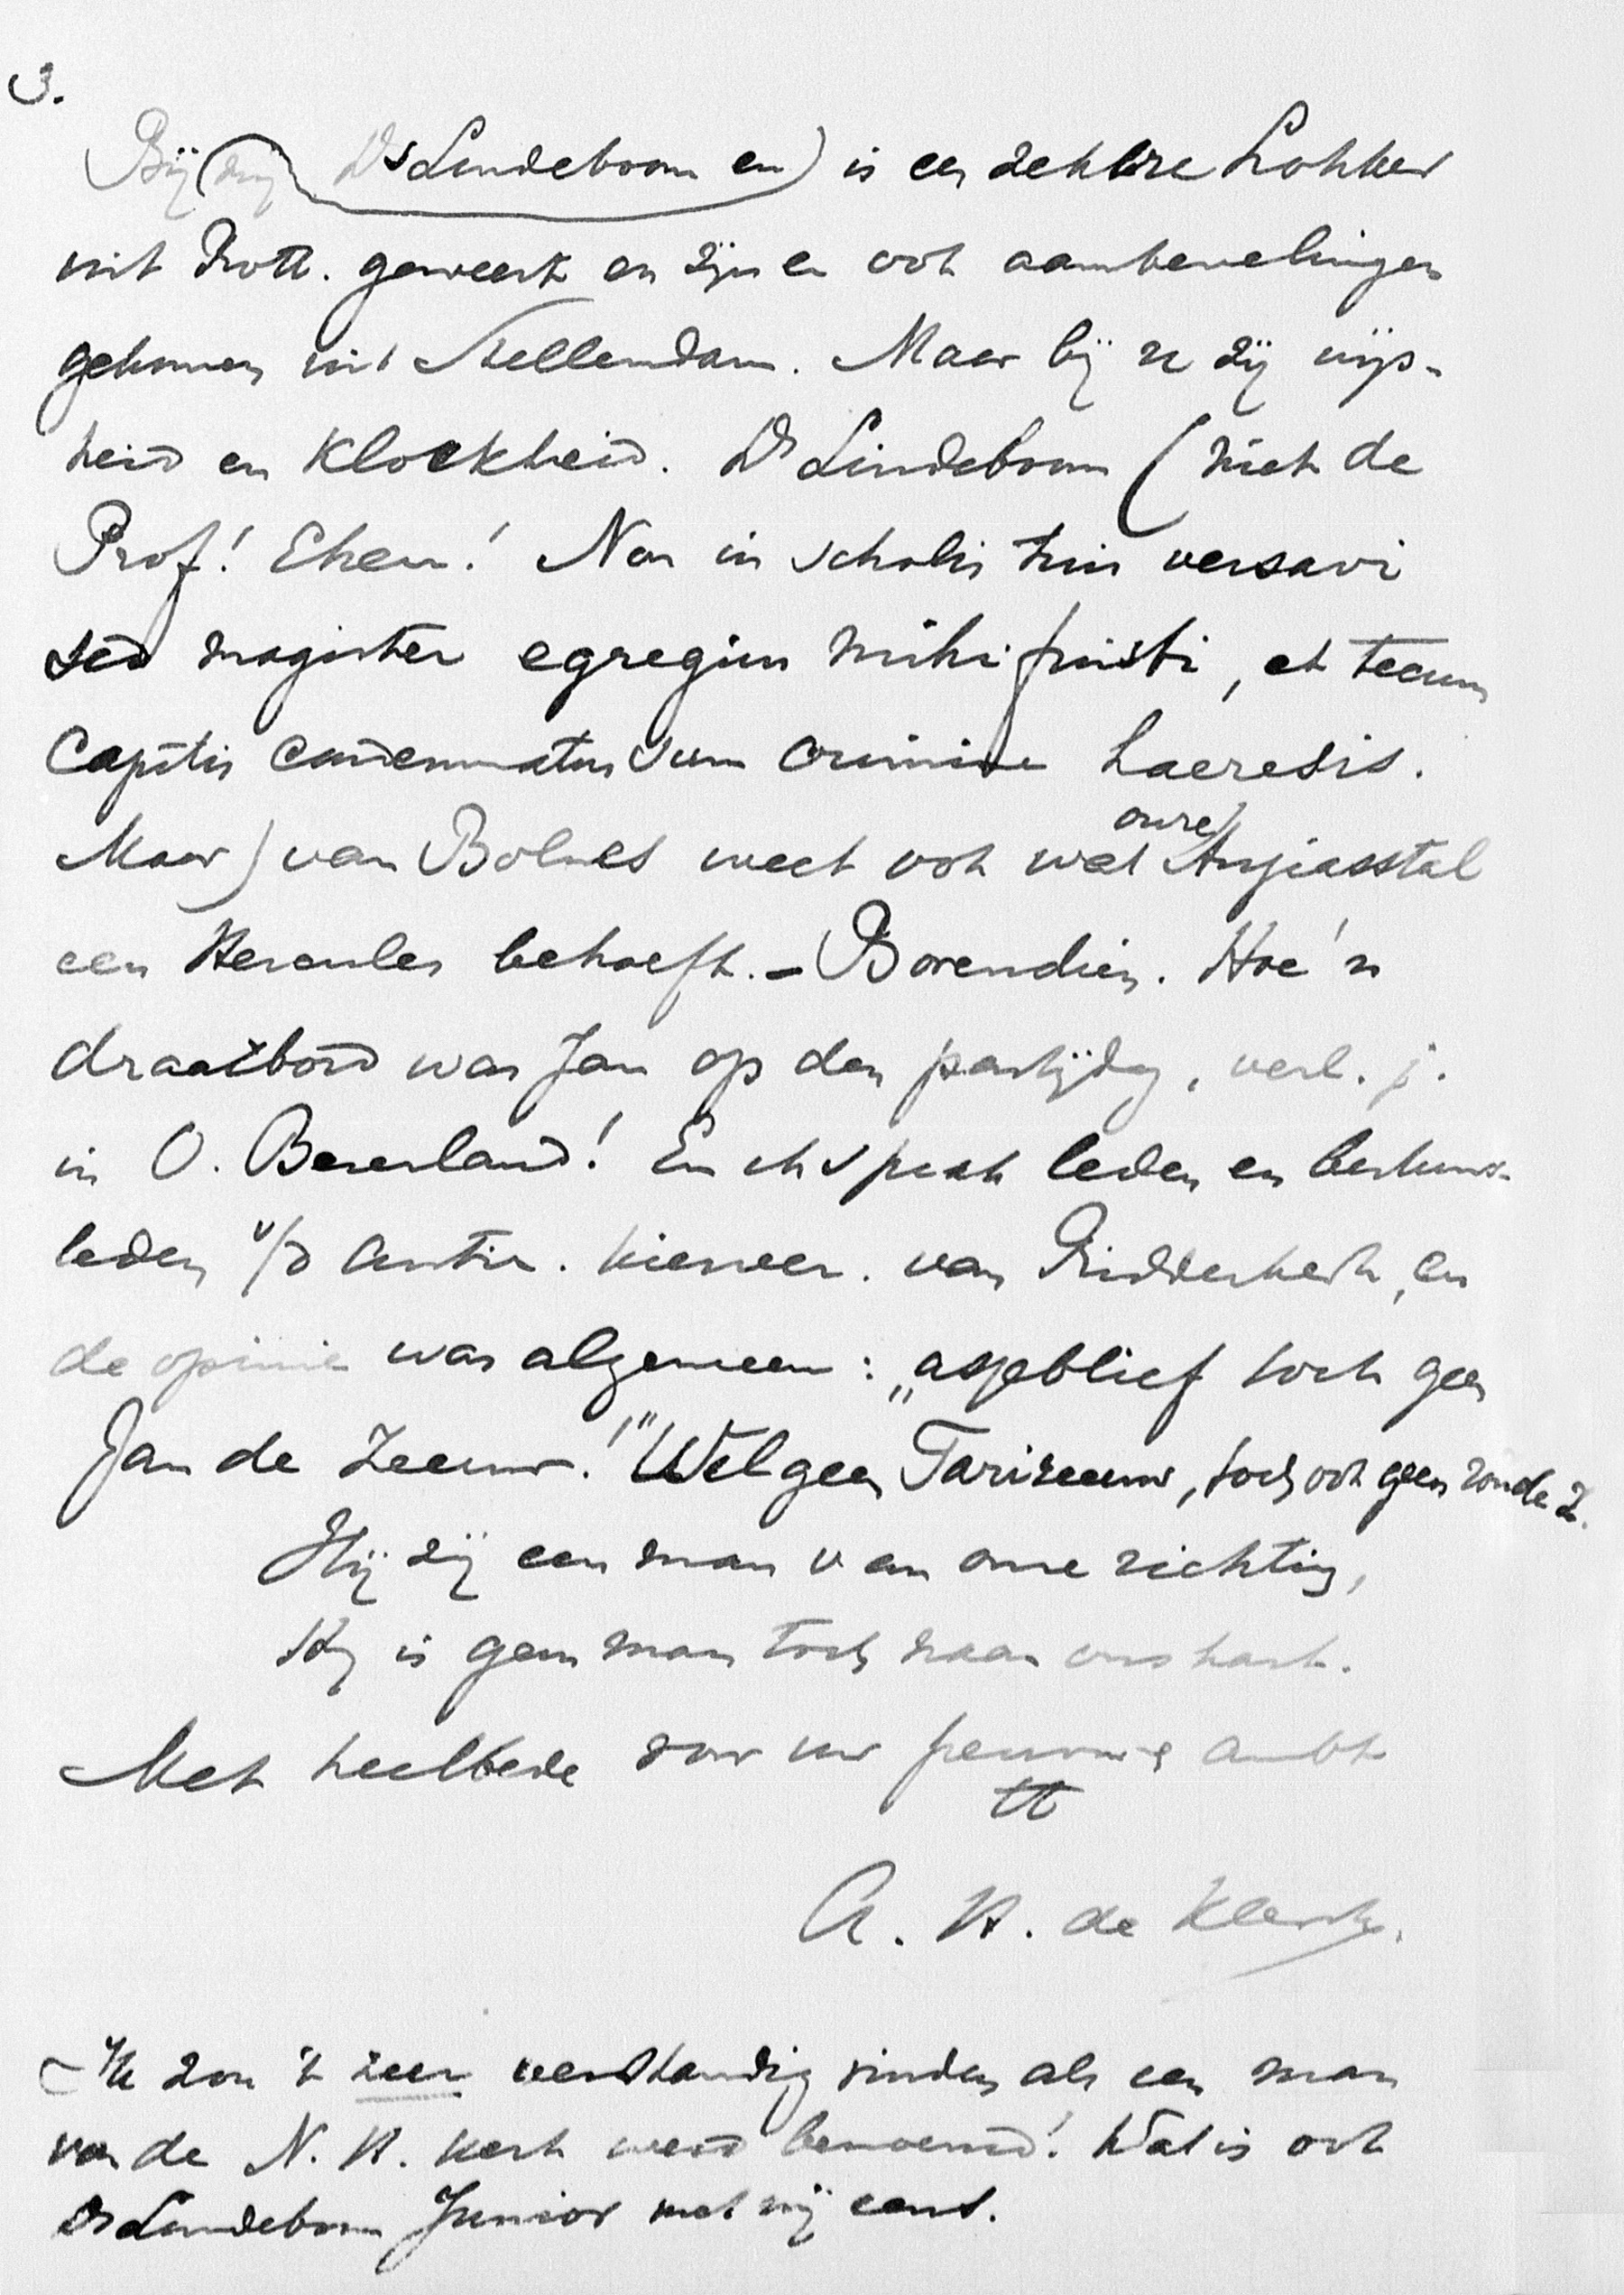 3.
Bij (mij Ds Lindeboom en) is een zekere Lokker
uit Rott. geweest en zijn er ook aanbevelingen
gekomen uit Stellendam. Maar bij u zij wijs-
heid en kloekheid. Ds Lindeboom (niet de
Prof! Ehem! Non in scholis tuis versavi
sed magister egregius mihi fuisti, et tecum
capitis condemnatus sum crimine haeresis.
Maar) van Bolnes weet ook wat onze Augiasstal
een Hercules behoeft. - Bovendien. Hoe 'n
draaibord was Jan op den partijdag, verl. j.
in O. Beierland! En ik sprak leden en bestuurs-
leden v/d antir. kiesver. van Ridderkerk, en
de opinie was algemeen: „asjeblief toch geen
Jan de Zeeuw!" Wel geen Farizeeuw, toch ook geen ronde Z.
Hij zij een man van onze richting,
Hij is geen man toch naar ons hart.
Met heilbede voor uw ambt
tt
A. R. de Klerk.
Ik zou 't zeer verstandig vinden als een man
van de N. H. kerk werd benoemd! Wat is ook
Ds Lindeboom Junior met mij eens.